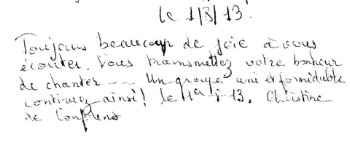 le 1/8/13.
Toujours beaucoup de joie à vous
écouter. Vous transmettez votre bonheur
de chanter .... Un groupe uni et formidable
continuez ainsi! le 1er 8-13. Christine
de Conflens